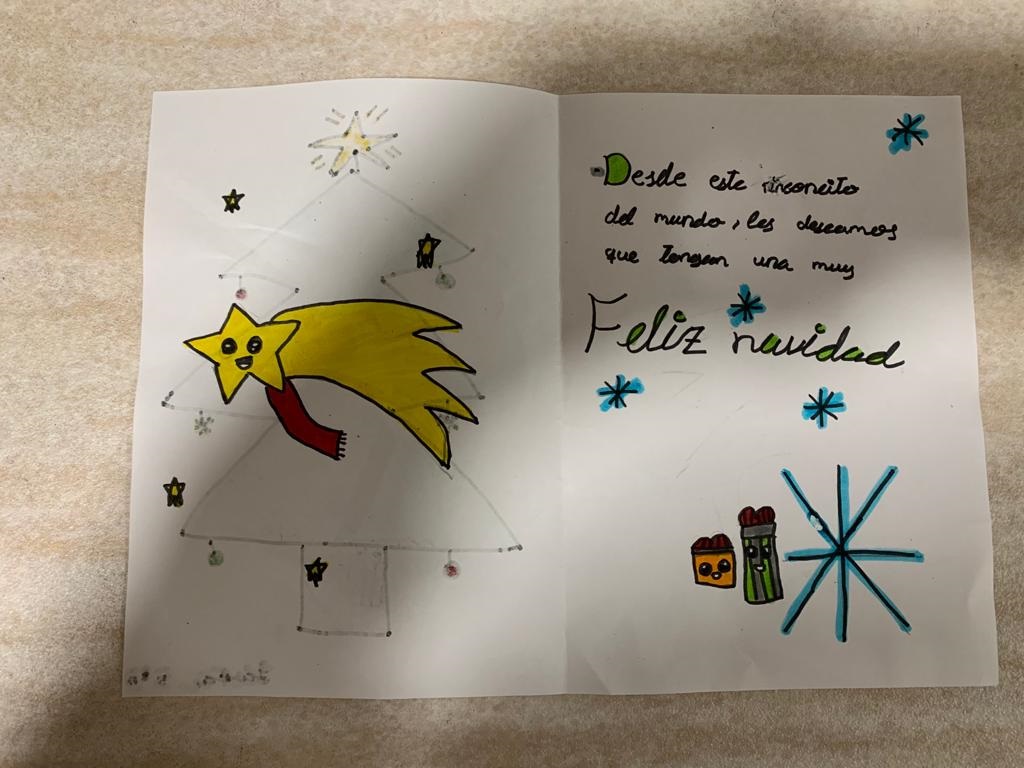 Desde este rinconcito
del mundo, les deseamos
que tengan una muy
Feliz navidad